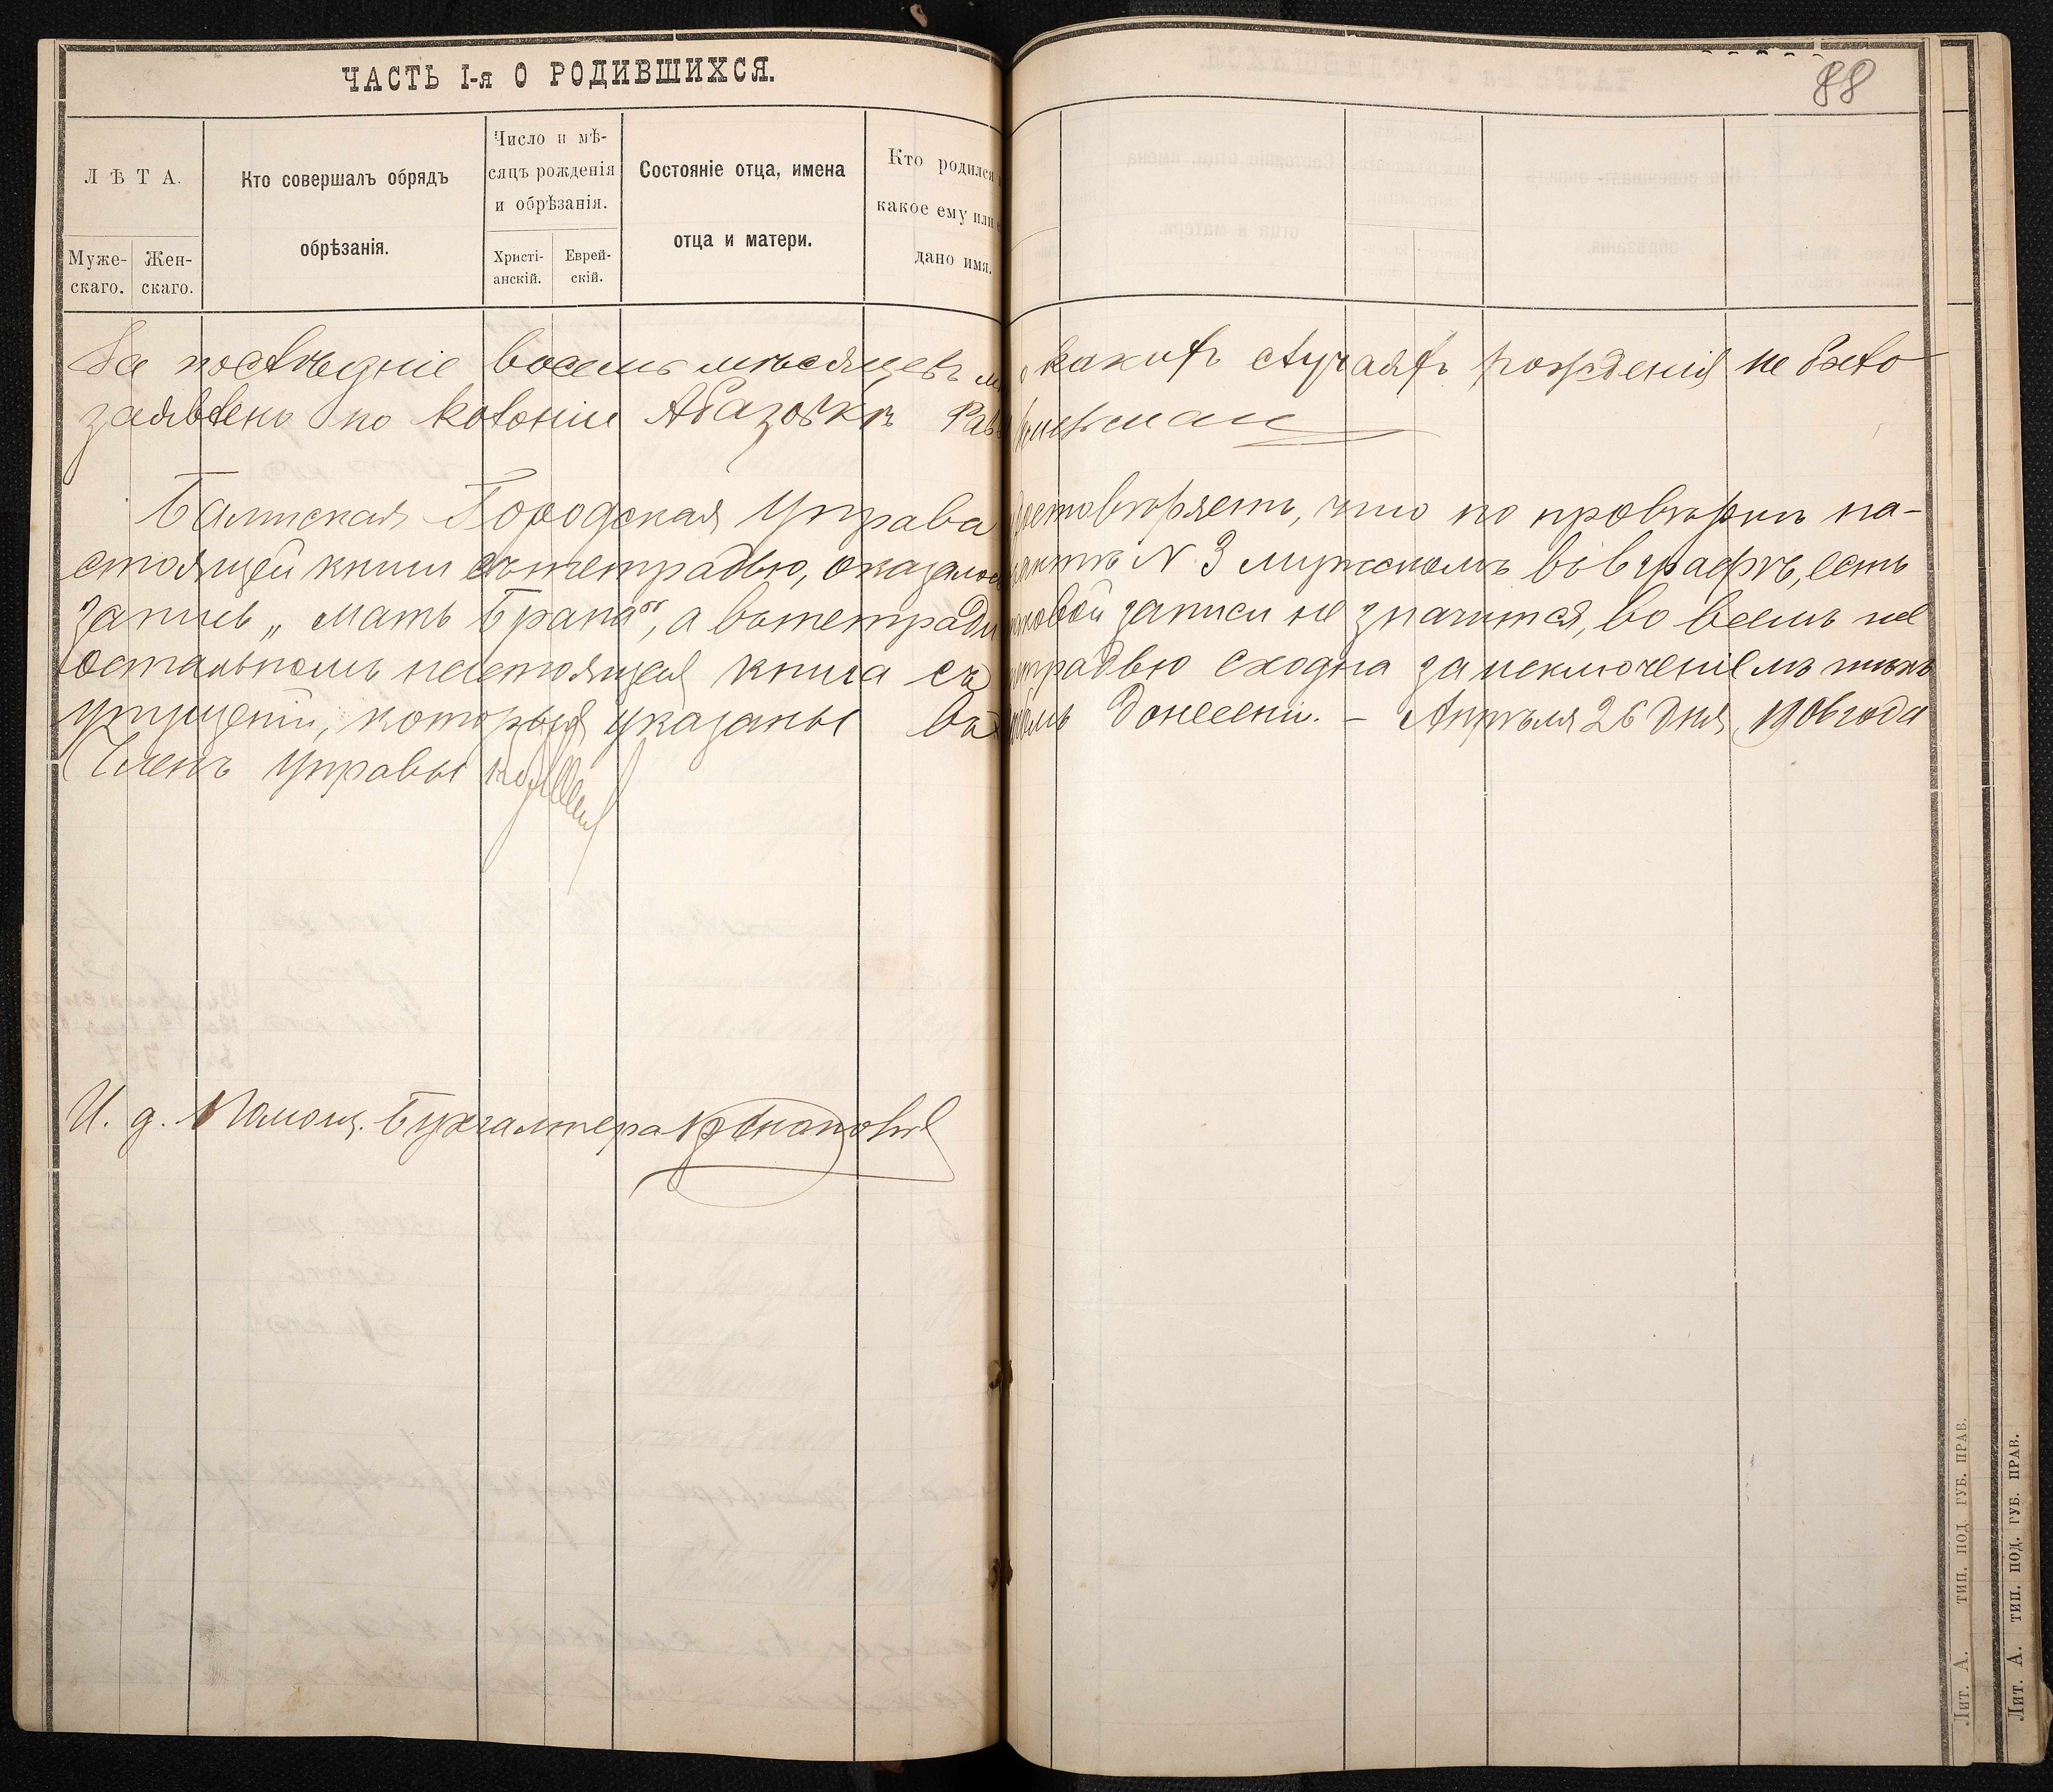 ЧАСТЬ I-я О РОДИВШИХСЯ.
88
ЛѢТА.
Муже-
скаго.
Жен-
скаго.
Кто совершалъ обрядъ
обрѣзанія.
Число и мѣ-
сяцъ рожденія
и обрѣзанія.
Христі-
анскій.
Еврей-
скій.
Состояніе отца, имена
отца и матери.
Кто родился
какое ему или
дано имя.
За послѣдніе восемь мѣсяцевъ какихъ случаяхъ рожденія не было
заявлено по колоніи Абазовкѣ Рав
Балтская Городская Управа достовѣряетъ, что по провѣркѣ на-
стоящей книги съ тетрадью, оказалось актѣ N 3 мужскомъ въ 6 графѣ, есть
запись „мать Брана", а въ тетради таковой записи не значится, во всемъ же
остальномъ настоящая книга съ тетрадью сходна за исключеніемъ тѣхъ
упущеній, которыя указаны въ донесеніи. — Апрѣля 26 дня 1906 года
Членъ Управы
И. д. Помощ. Бухгалтера
Лит. А. ТИП. ПОД. ГУБ. ПРАВ.
Лит. А. ТИП. ПОД. ГУБ. ПРАВ.